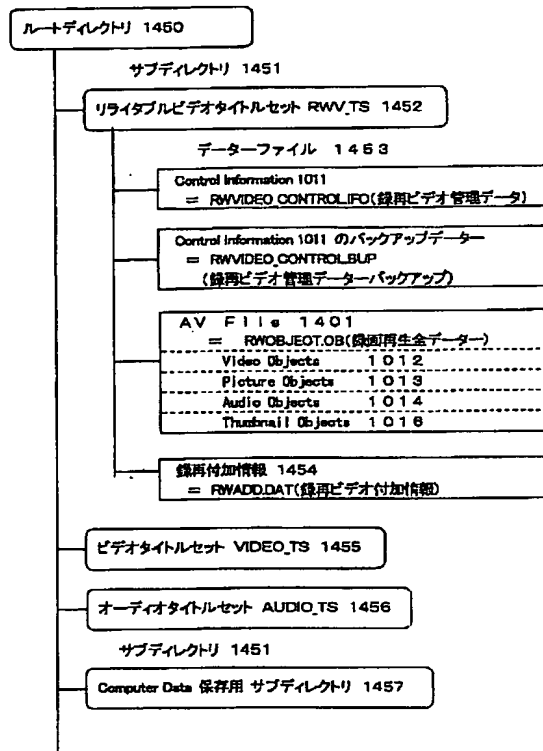 ルートディレクトリ 1450
サブディレクトリ 1451
リライタブルビデオタイトルセット RWV_TS 1452
データーファイル 1453
Control Information 1011
= RWVIDEO_CONTROL.IFO(録再ビデオ管理データ)
Control Information 1011 のバックアップデーター
= RWVIDEO_CONTROL.BUP
(録再ビデオ管理データーバックアップ)
AV File 1401
= RWOBJECT.OB(録画再生全データー)
Video Objects 1012
Picture Objects 1013
Audio Objects 1014
Thumbnail Objects 1016
録再付加情報 1454
= RWADD.DAT(録再ビデオ付加情報)
ビデオタイトルセット VIDEO_TS 1455
オーディオタイトルセット AUDIO_TS 1456
サブディレクトリ 1451
Computer Data 保存用 サブディレクトリ 1457